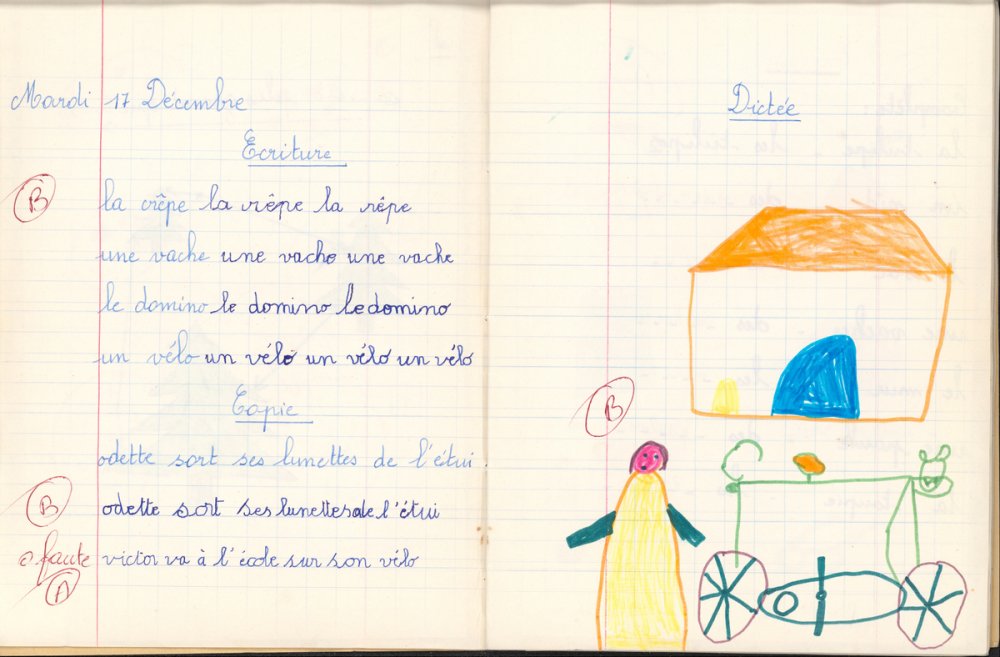 Mardi 17 Décembre
Ecriture
B
la crêpe la crêpe la rêpe
une vache une vache une vache
le domino le domino le domino
un vélo un vélo un vélo un vélo
Copie
odette sort ses lunettes de l'étui.
B odette sort ses lunettes de l'étui
0 faute victor va à l'école sur son vélo
A
Dictée
B